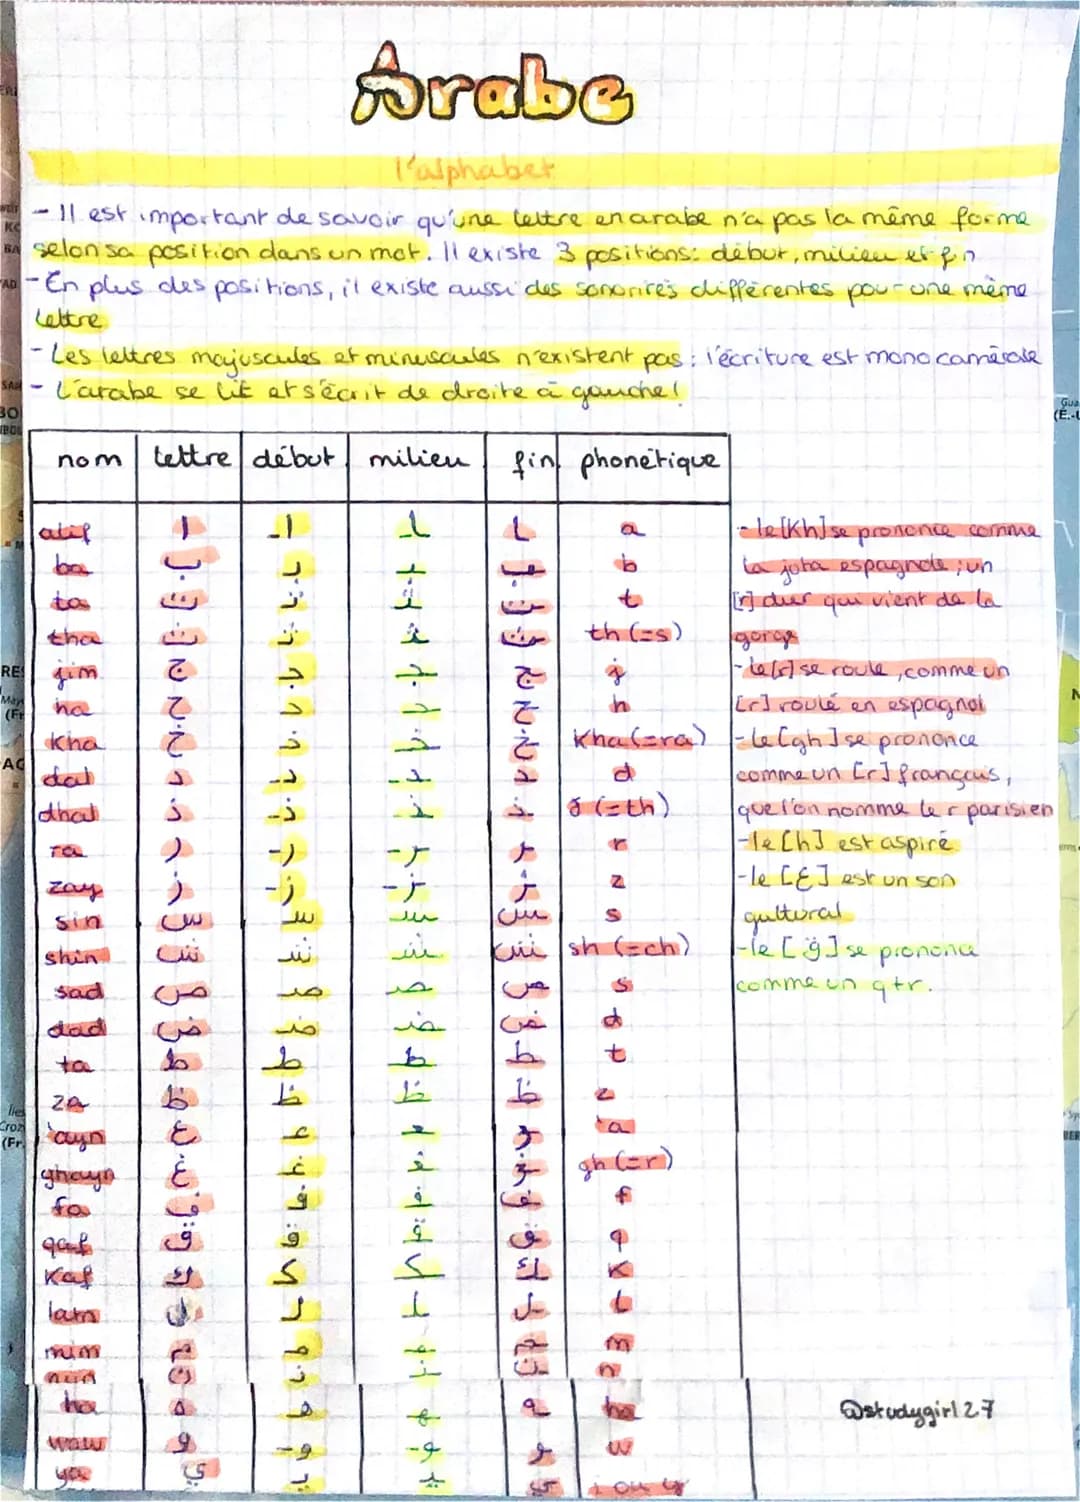 Arabe
l'alphabet
- Il est important de savoir qu'une lettre en arabe n'a pas la même forme
selon sa position dans un mot. Il existe 3 positions: début, milieu et fin
- En plus des positions, il existe aussi des sonorités différentes pour une même
lettre
- Les lettres majuscules et minuscules n'existent pas : l'écriture est monocamérale
- L'arabe se lit et s'écrit de droite à gauche!
nom lettre début milieu fin phonétique
alif ا ا ـا ـا a
ba ب بـ ـبـ ـب b
ta ت تـ ـتـ ـت t
tha ث ثـ ـثـ ـث th (=s)
jim ج جـ ـجـ ـج j
ha ح حـ ـحـ ـح h
Kha خ خـ ـخـ ـخ Kha (=ra)
dal د د ـد ـد d
dhal ذ ذ ـذ ـذ (=th)
ra ر ر ـر ـر r
zay ز ز ـز ـز z
sin س سـ ـسـ ـس s
shin ش شـ ـشـ ـش sh (=ch)
sad ص صـ ـصـ ـص s
dad ض ضـ ـضـ ـض d
ta ط ط ط ط t
za ظ ظ ظ ظ z
'ayn ع عـ ـعـ ـع 'a
ghayn غ غـ ـغـ ـغ gh (=r)
fa ف فـ ـفـ ـف f
qaf ق قـ ـقـ ـق q
Kaf ك كـ ـكـ ـك K
lam ل لـ ـلـ ـل l
mim م مـ ـمـ ـم m
nun ن نـ ـنـ ـن n
ha ه هـ ـهـ ـه ha
waw و و ـو ـو w
ya ي يـ ـيـ ـي i ou y
- le [Kh] se prononce comme
la jota espagnole ; un
[r] dur qui vient de la
gorge
- le [r] se roule, comme un
[r] roulé en espagnol
- le [gh] se prononce
comme un [r] français,
que l'on nomme le r parisien
- le [h] est aspiré
- le [Ɛ] est un son
guttural
- le [g̈] se prononce
comme un q+r.
@studygirl27